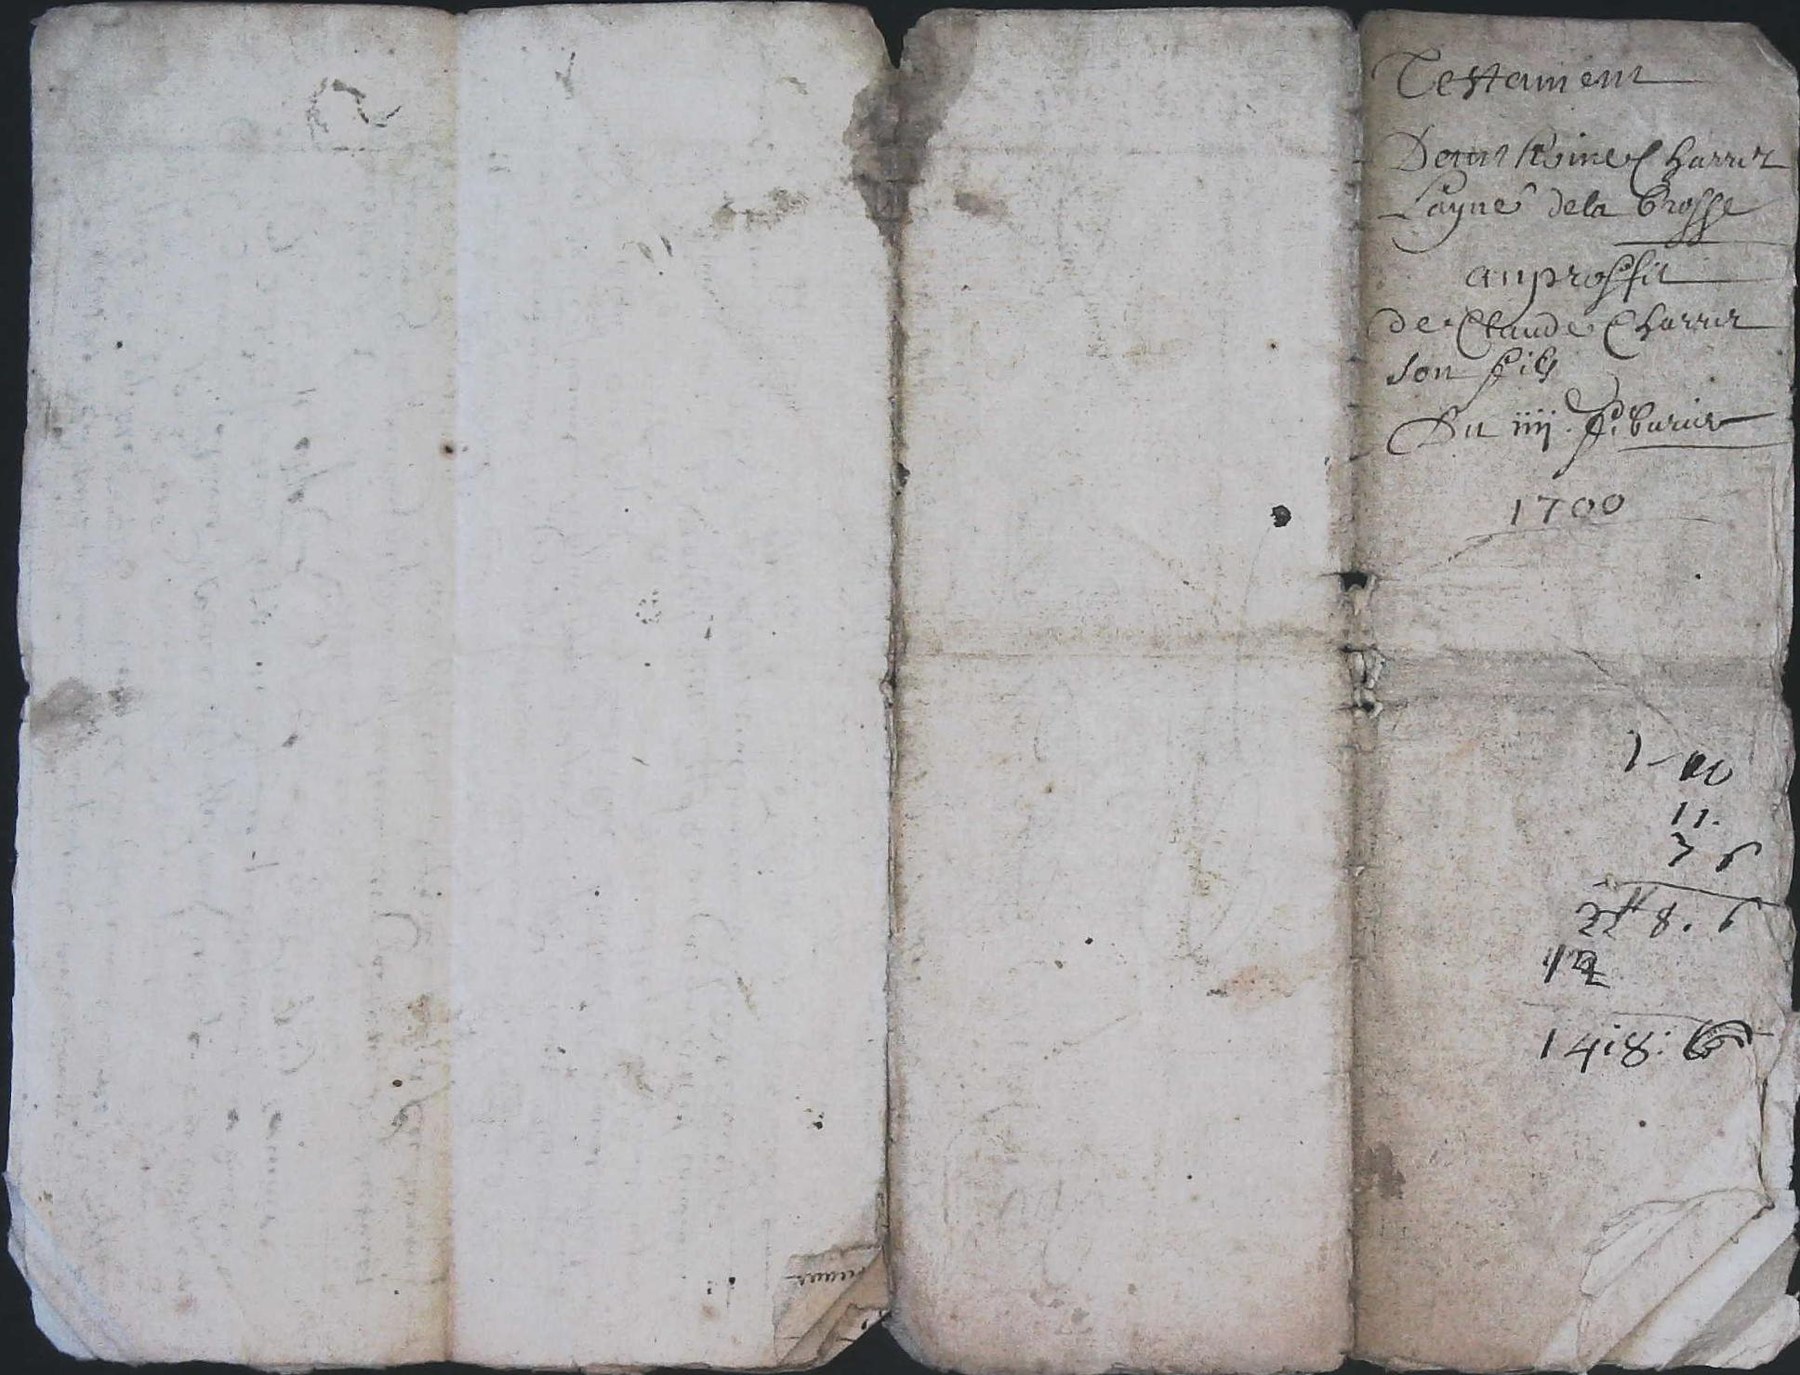 Testament
Dantthoine Charrer
Layné dela Brosse
auproffit
de Claude Charrer
son fils
Du iiij febvrier
1700
1 - 10
11.
7 6
2# 8. 6
12
14:8: 6